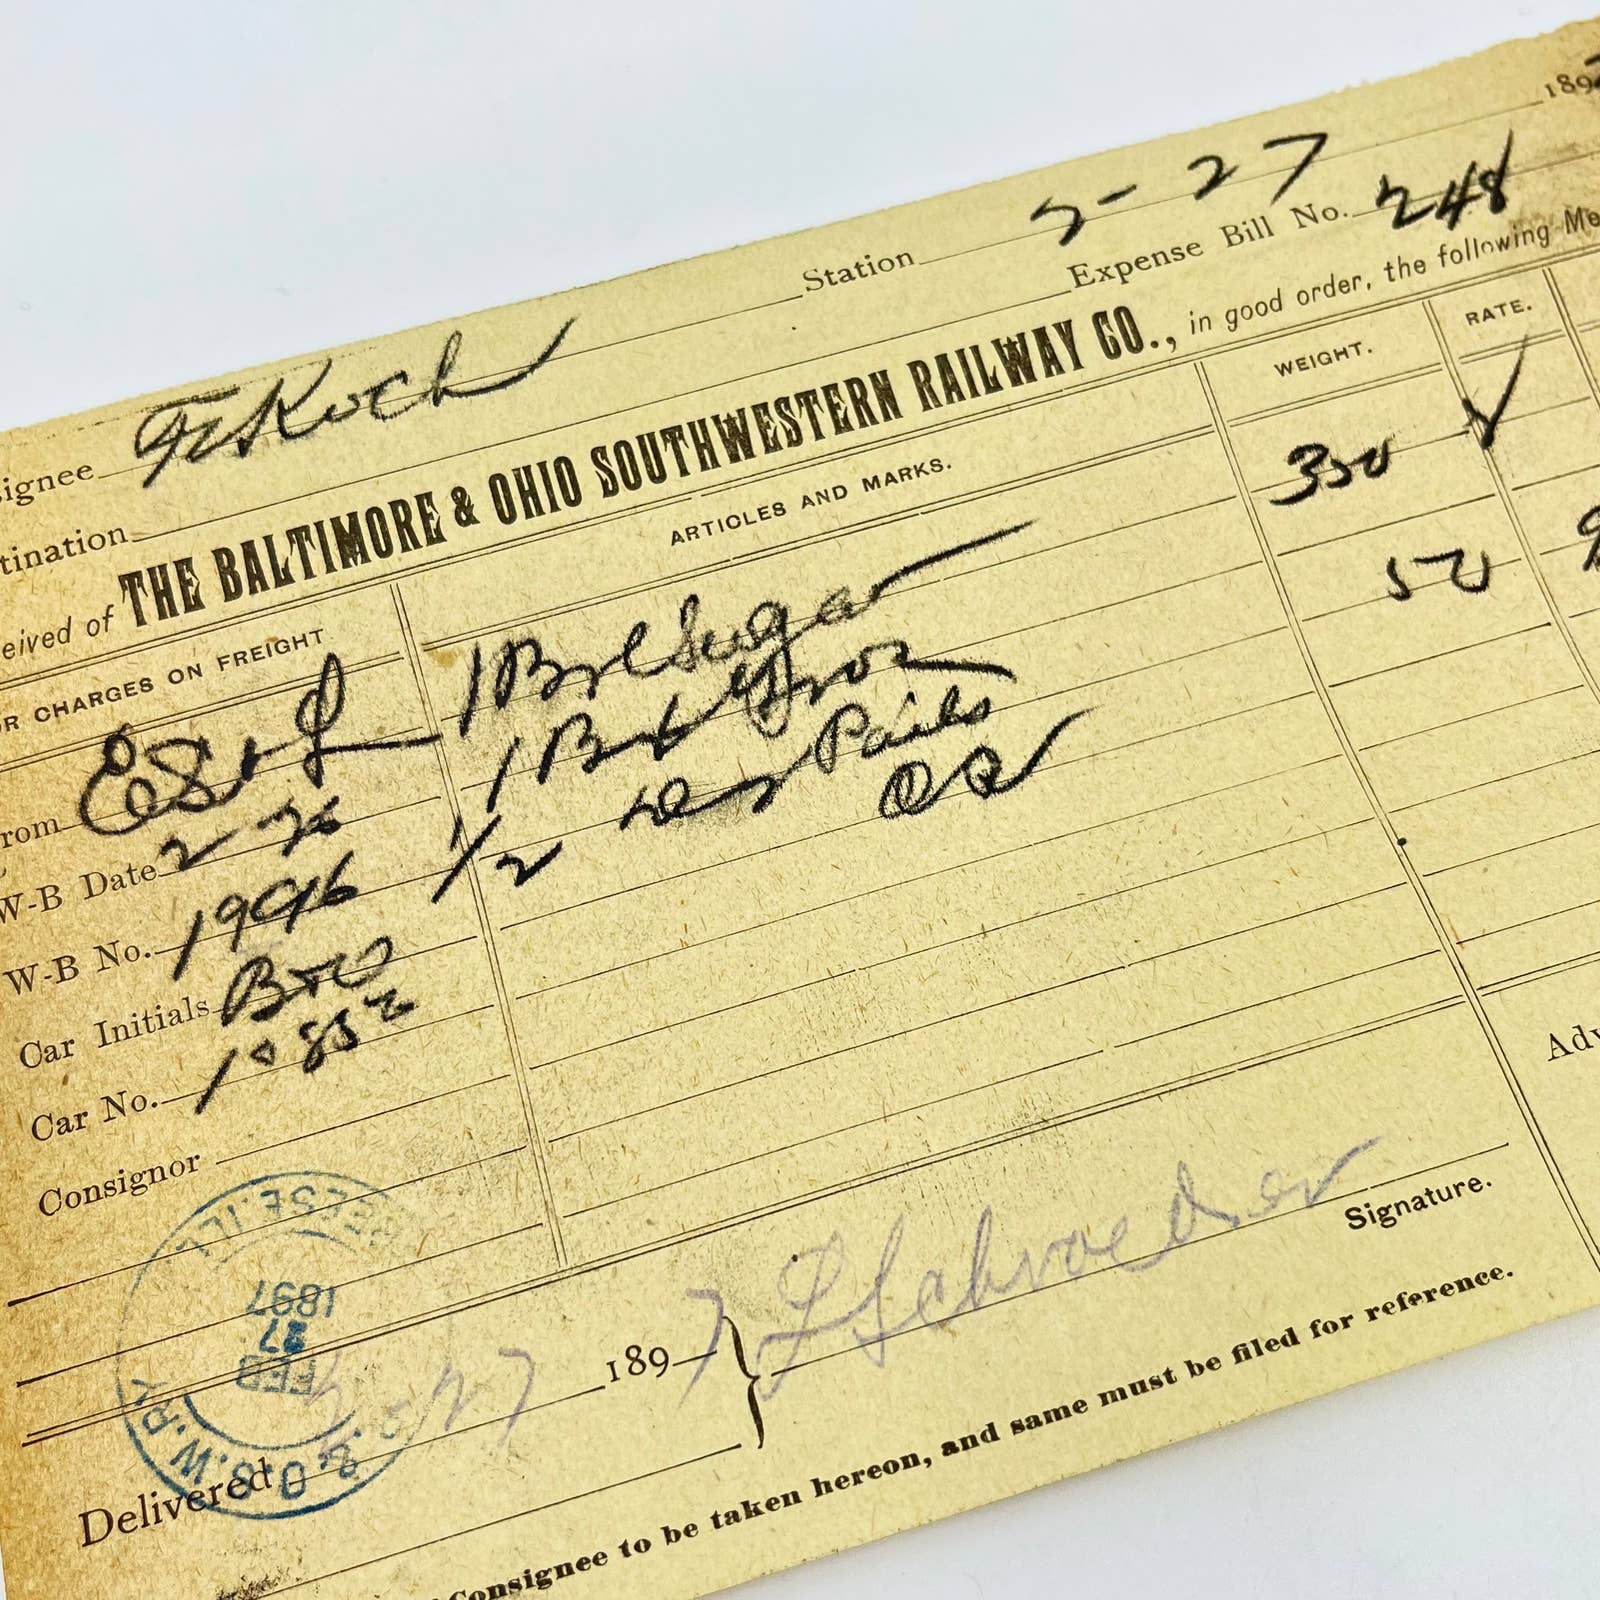 189
Station 2-27
signee Koch
Expense Bill No. 248
tination
eived of THE BALTIMORE & OHIO SOUTHWESTERN RAILWAY CO., in good order, the following Me
OR CHARGES ON FREIGHT ARTICLES AND MARKS. WEIGHT. RATE.
rom E St L 1 Brl Sugar 350
W-B Date 2-26 1 Bx 50
W-B No. 1996 1/2 Pails
Car Initials B&O OR
Car No. 10852
Consignor
BREESE. ILL.
FEB 27 1897
B. & O. S. W. RY.
Delivered 2-27 1897 } L Schroeder
Signature.
Consignee to be taken hereon, and same must be filed for reference.
Adv